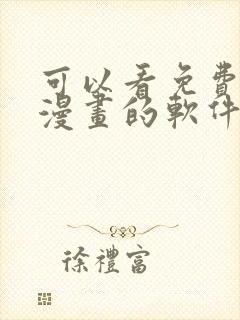 可以看免費
漫畫的軟件
徐禮富